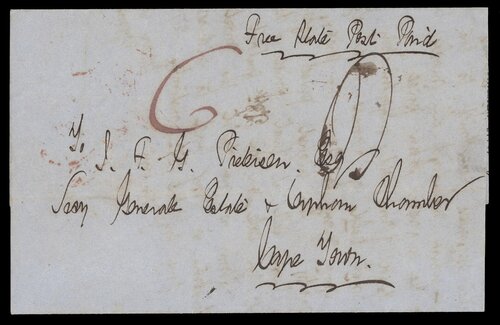 Free State Post Paid
6
To
J. F. G. Pietersen. Esq
Secry Generale Estate & Orphan Chamber
Cape Town.